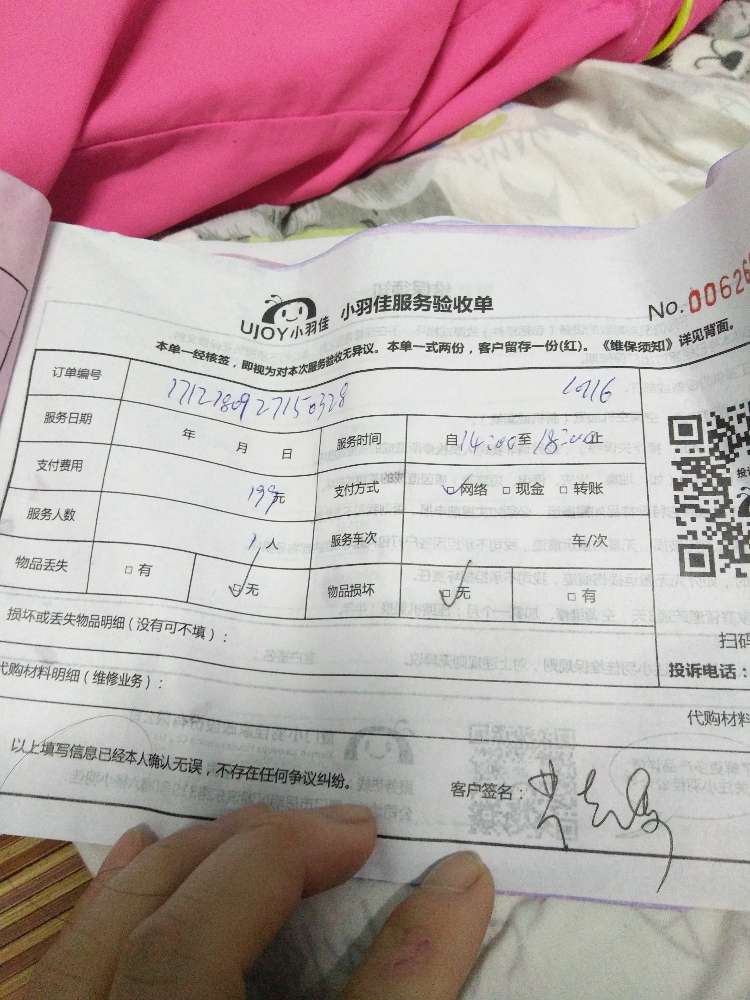 UJOY小羽佳 小羽佳服务验收单
No.00626
本单一经核签，即视为对本次服务验收无异议。本单一式两份，客户留存一份(红)。《维保须知》详见背面。
订单编号 1016
服务日期 年 月 日 服务时间 自14:00至18:00止
支付费用 199元 支付方式 网络 □现金 □转账
服务人数 1人 服务车次 车/次
物品丢失 □有 □无 物品损坏 □无 □有
损坏或丢失物品明细(没有可不填)：
扫码
投诉电话：
代购材料明细(维修业务)：
代购材料
以上填写信息已经本人确认无误，不存在任何争议纠纷。
客户签名：